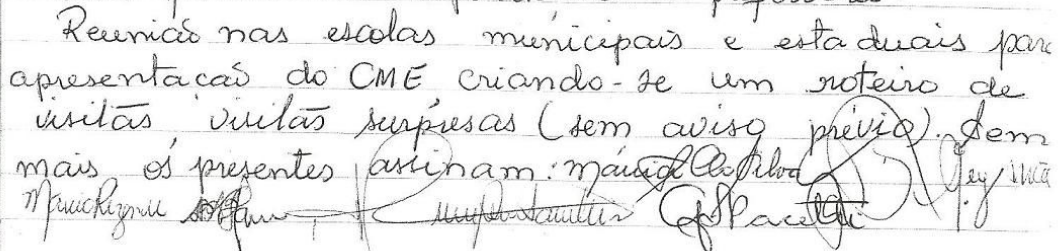 Reunião nas escolas municipais e estaduais para
apresentação do CME criando-se um roteiro de
visitas, visitas surpresas (sem aviso prévio). Sem
mais os presentes assinam: